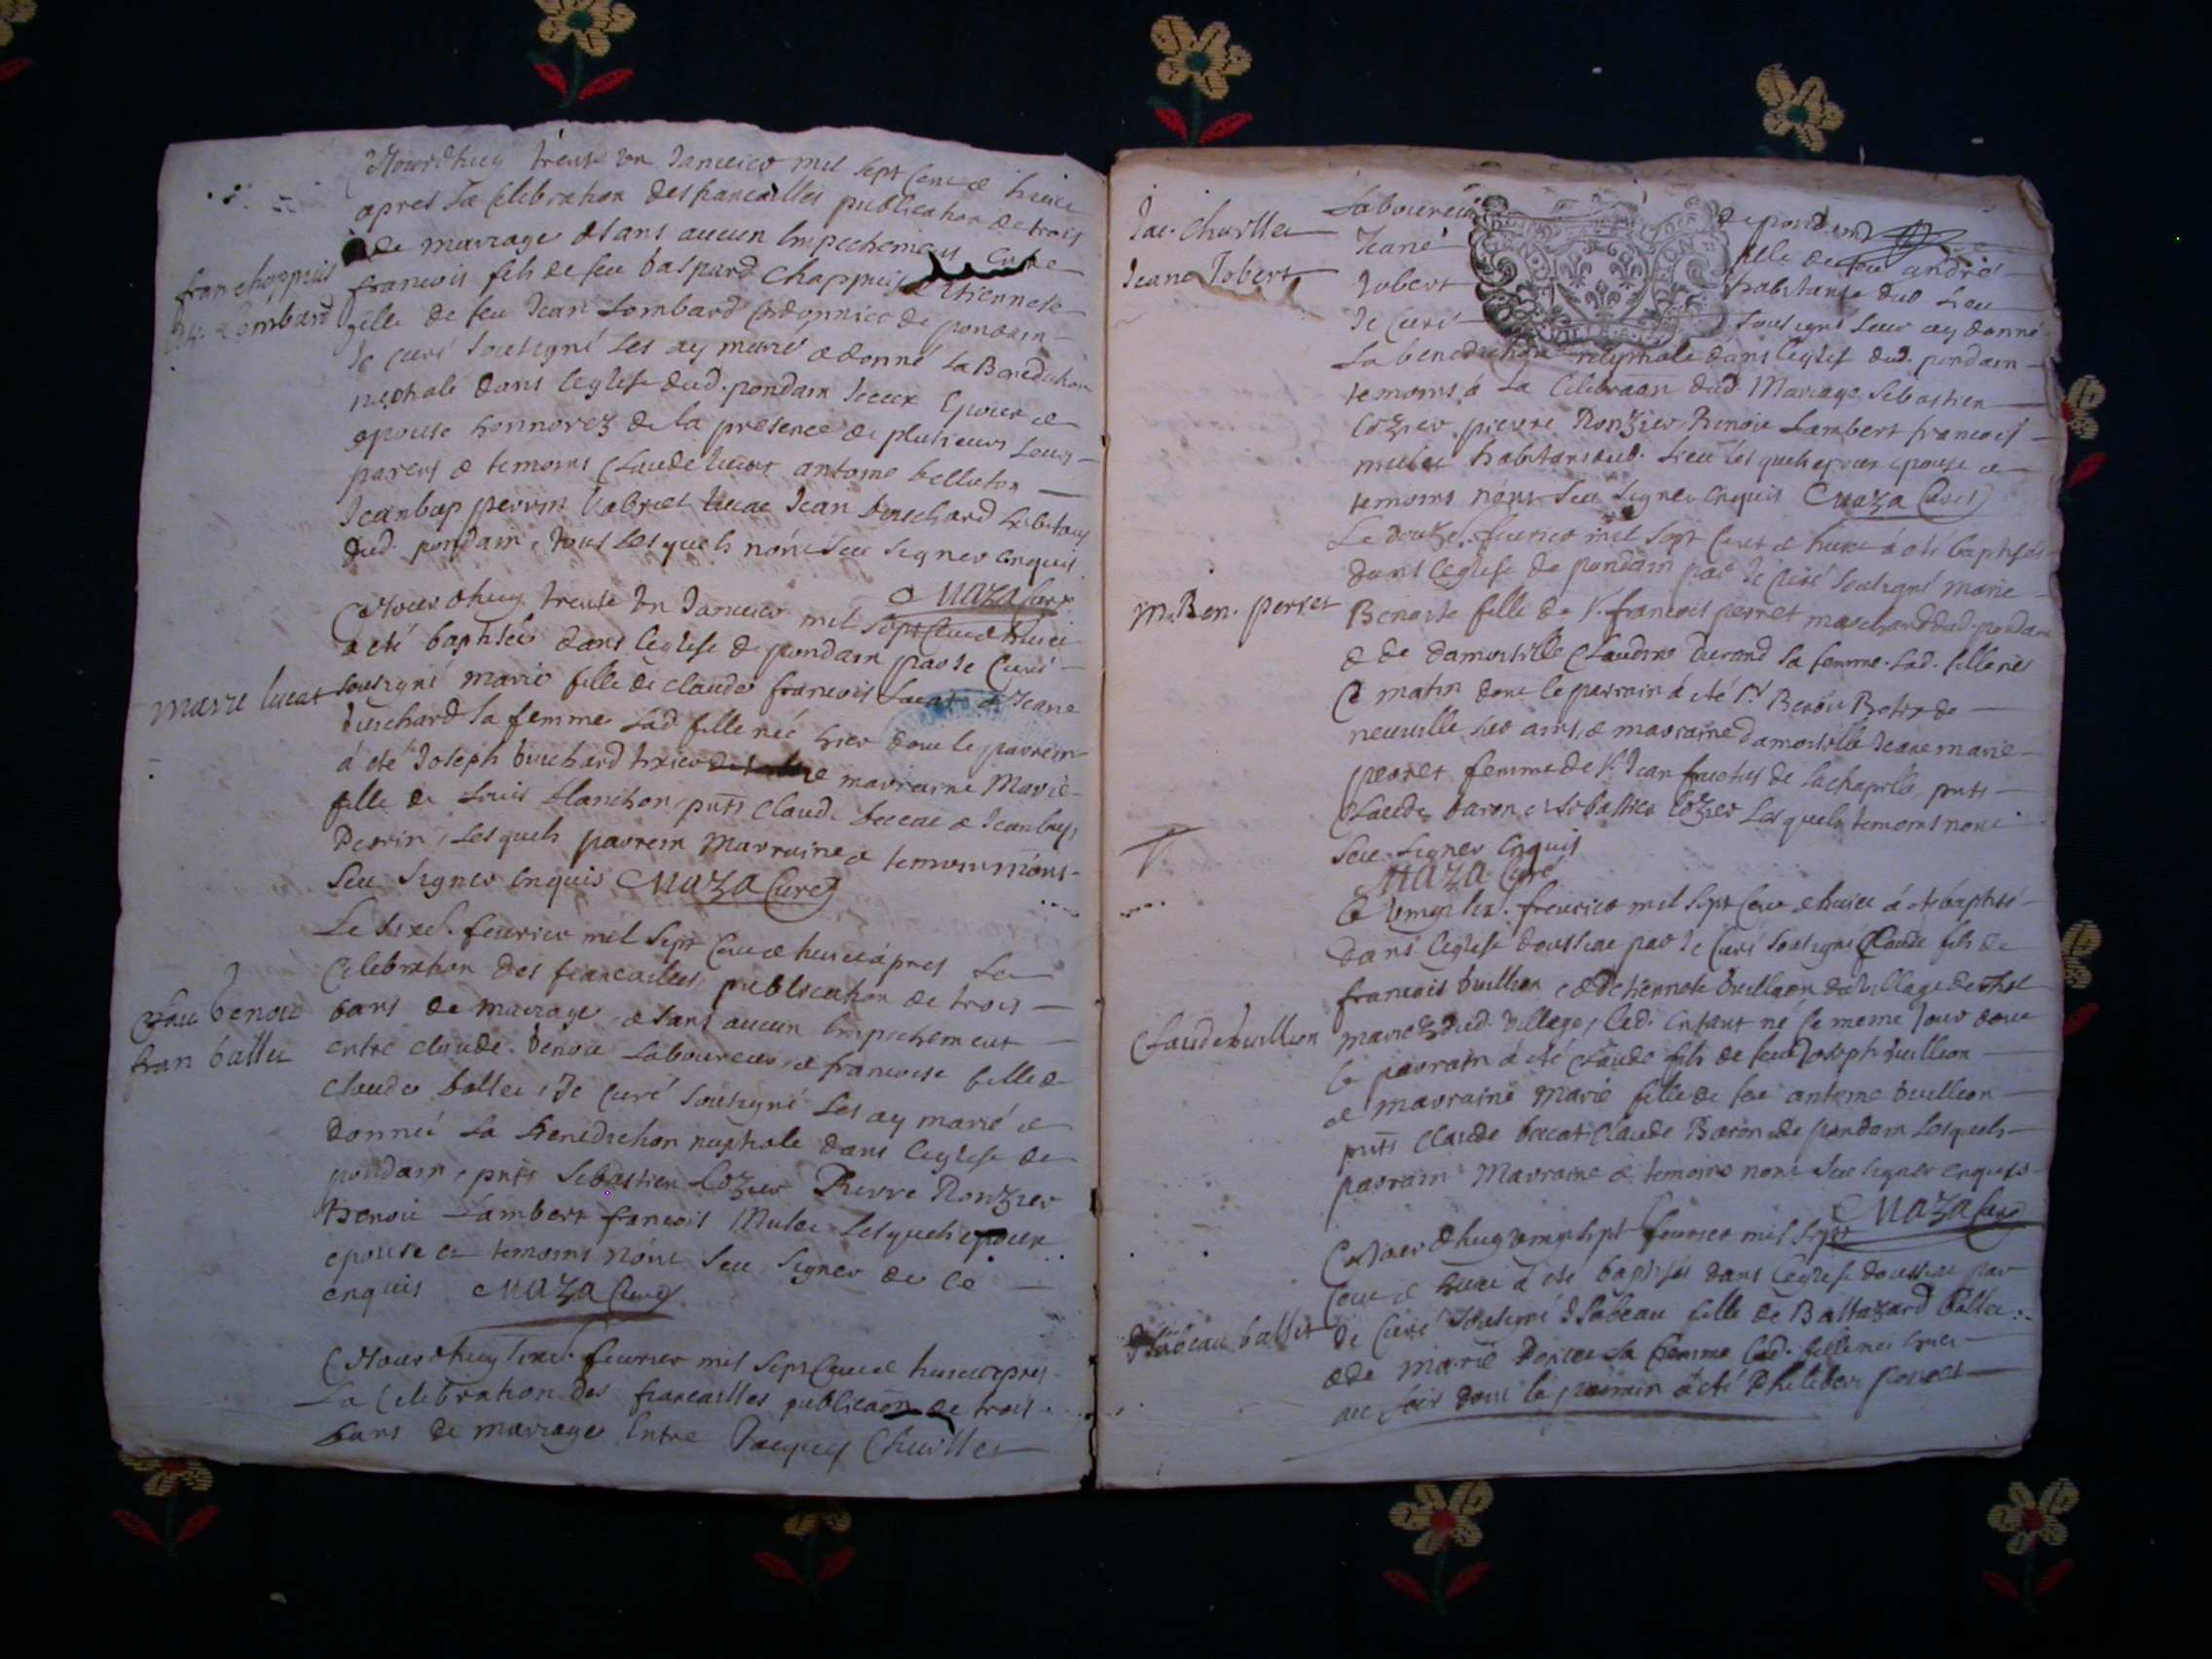 Jourdhuy trente un Januier mil sept cent et huict
apres la celebration des fiancailles publication de trois
de mariage et sans aucun Impechement Entre
fran chappuis
francois fils de feu Gaspard Chappuis Etiennete
lombard
fille de feu Jean Lombard Cordonnier de pondain
Je curé soubsigné les ay marié et donné la Benediction
nuptiale dans leglise dud. pondain Iceux Epoux et
epouse honnorez de la presence de plusieurs leurs
parens et temoins Claude antoine belluton
Jean bap perrin Gabriel lucat Jean buichard habitans
dud. pondain, tous lesquels nont seu signer enquis
Maza Curé
Jourdhuy trente Un Januier mil sept Cent et huict
a eté baptisée dans leglise de pondain par Je Curé
marie lucat
soubsigné marie fille de claude francois Lucat et Jeane
buichard sa femme lad. fille née hier dont le parrein
á eté Joseph buichard et marraine Marie
fille de Louis blanchon, pnts Claude lucat et Jean bap,
perrin, lesquels parrein Marraine et temoins nont
seu signer enquis Maza Curé
Le sixe. feurier mil sept Cent et huict ápres la
Celebration des fiancailles, publication de trois
Clau benoit
bans de mariage, et sans aucun Impechement
fran ballet
entre claude. benoit Laboureur, et francoise fille de
claude ballet, Je Curé soubsigné Les ay marié et
donneé La Benediction nuptiale dans leglise de
pondain, pnts Sebastien Cozier Pierre Ronzier
Benoit Lambert francois Mulet Lesquels epoux
epouse et temoins nont seu signer de ce
enquis Maza Curé
Jourdhuy sixe. feurier mil sept Cent et huict apres
La Celebration des fiancailles publicaon de trois
bans de mariage Entre Jacques Chuillet
Jac. Chuillet
Laboureur de pond.
Jeane Jobert
Jeane fille de feu andré
Jobert habitante dud Lieu
Je Curé soubsigné leur ay donné
La benediction nuptiale dans leglise dud. pondain
temoins á La Celebraon dud Mariage Sebastien
Cozier pierre Ronzier Benoit Lambert francois
mulet habitans dud. Lieu lesquels epoux epouse et
temoins nont seu signer enquis Maza Curé
Le douze. feurier mil sept Cent et huict á eté baptisée
dans leglise de pondain par Je Curé soubsigné marie
M. Ben. perret
Benoite fille de Sr. francois perret marchand dud. pondain
et de damoiselle Claudine Durand sa femme. lad. fille née
Ce matin dont le parrain á eté Sr. Benoit
neuuille sur ains, et marraine damoiselle Jeane marie
perret femme de Sr. Jean fructus de lachapelle, pnts
Claude baron et Sebastien Cozier Lesquels temoins nont
seu signer enquis
Maza Curé
Ce vingt feurier mil sept Cent et huict á eté baptisé
dans leglise doussiat par Je Curé soubsigné Claude fils de
francois buillion et detiennete buillion du Village
Claude buillion
mariez dud. Village, led. enfant né le meme Jour dont
le parrain á eté Claude fils de feu Joseph buillion
et marraine Marie fille de feu antoine buillion
pnts Claude lucat Claude Baron de pondain lesquels
parrain Marraine et temoins nont seu signer enquis
Maza Curé
Jourdhuy vingt sept feurier mil sept
Cent et huict á eté baptisée dans leglise doussiat par
Isabeau ballet
Je Curé soubsigné Isabeau fille de Baltazard Ballet
et de marie sa femme lad. fille née hier
au soir dont le parrain á eté Philibert perret